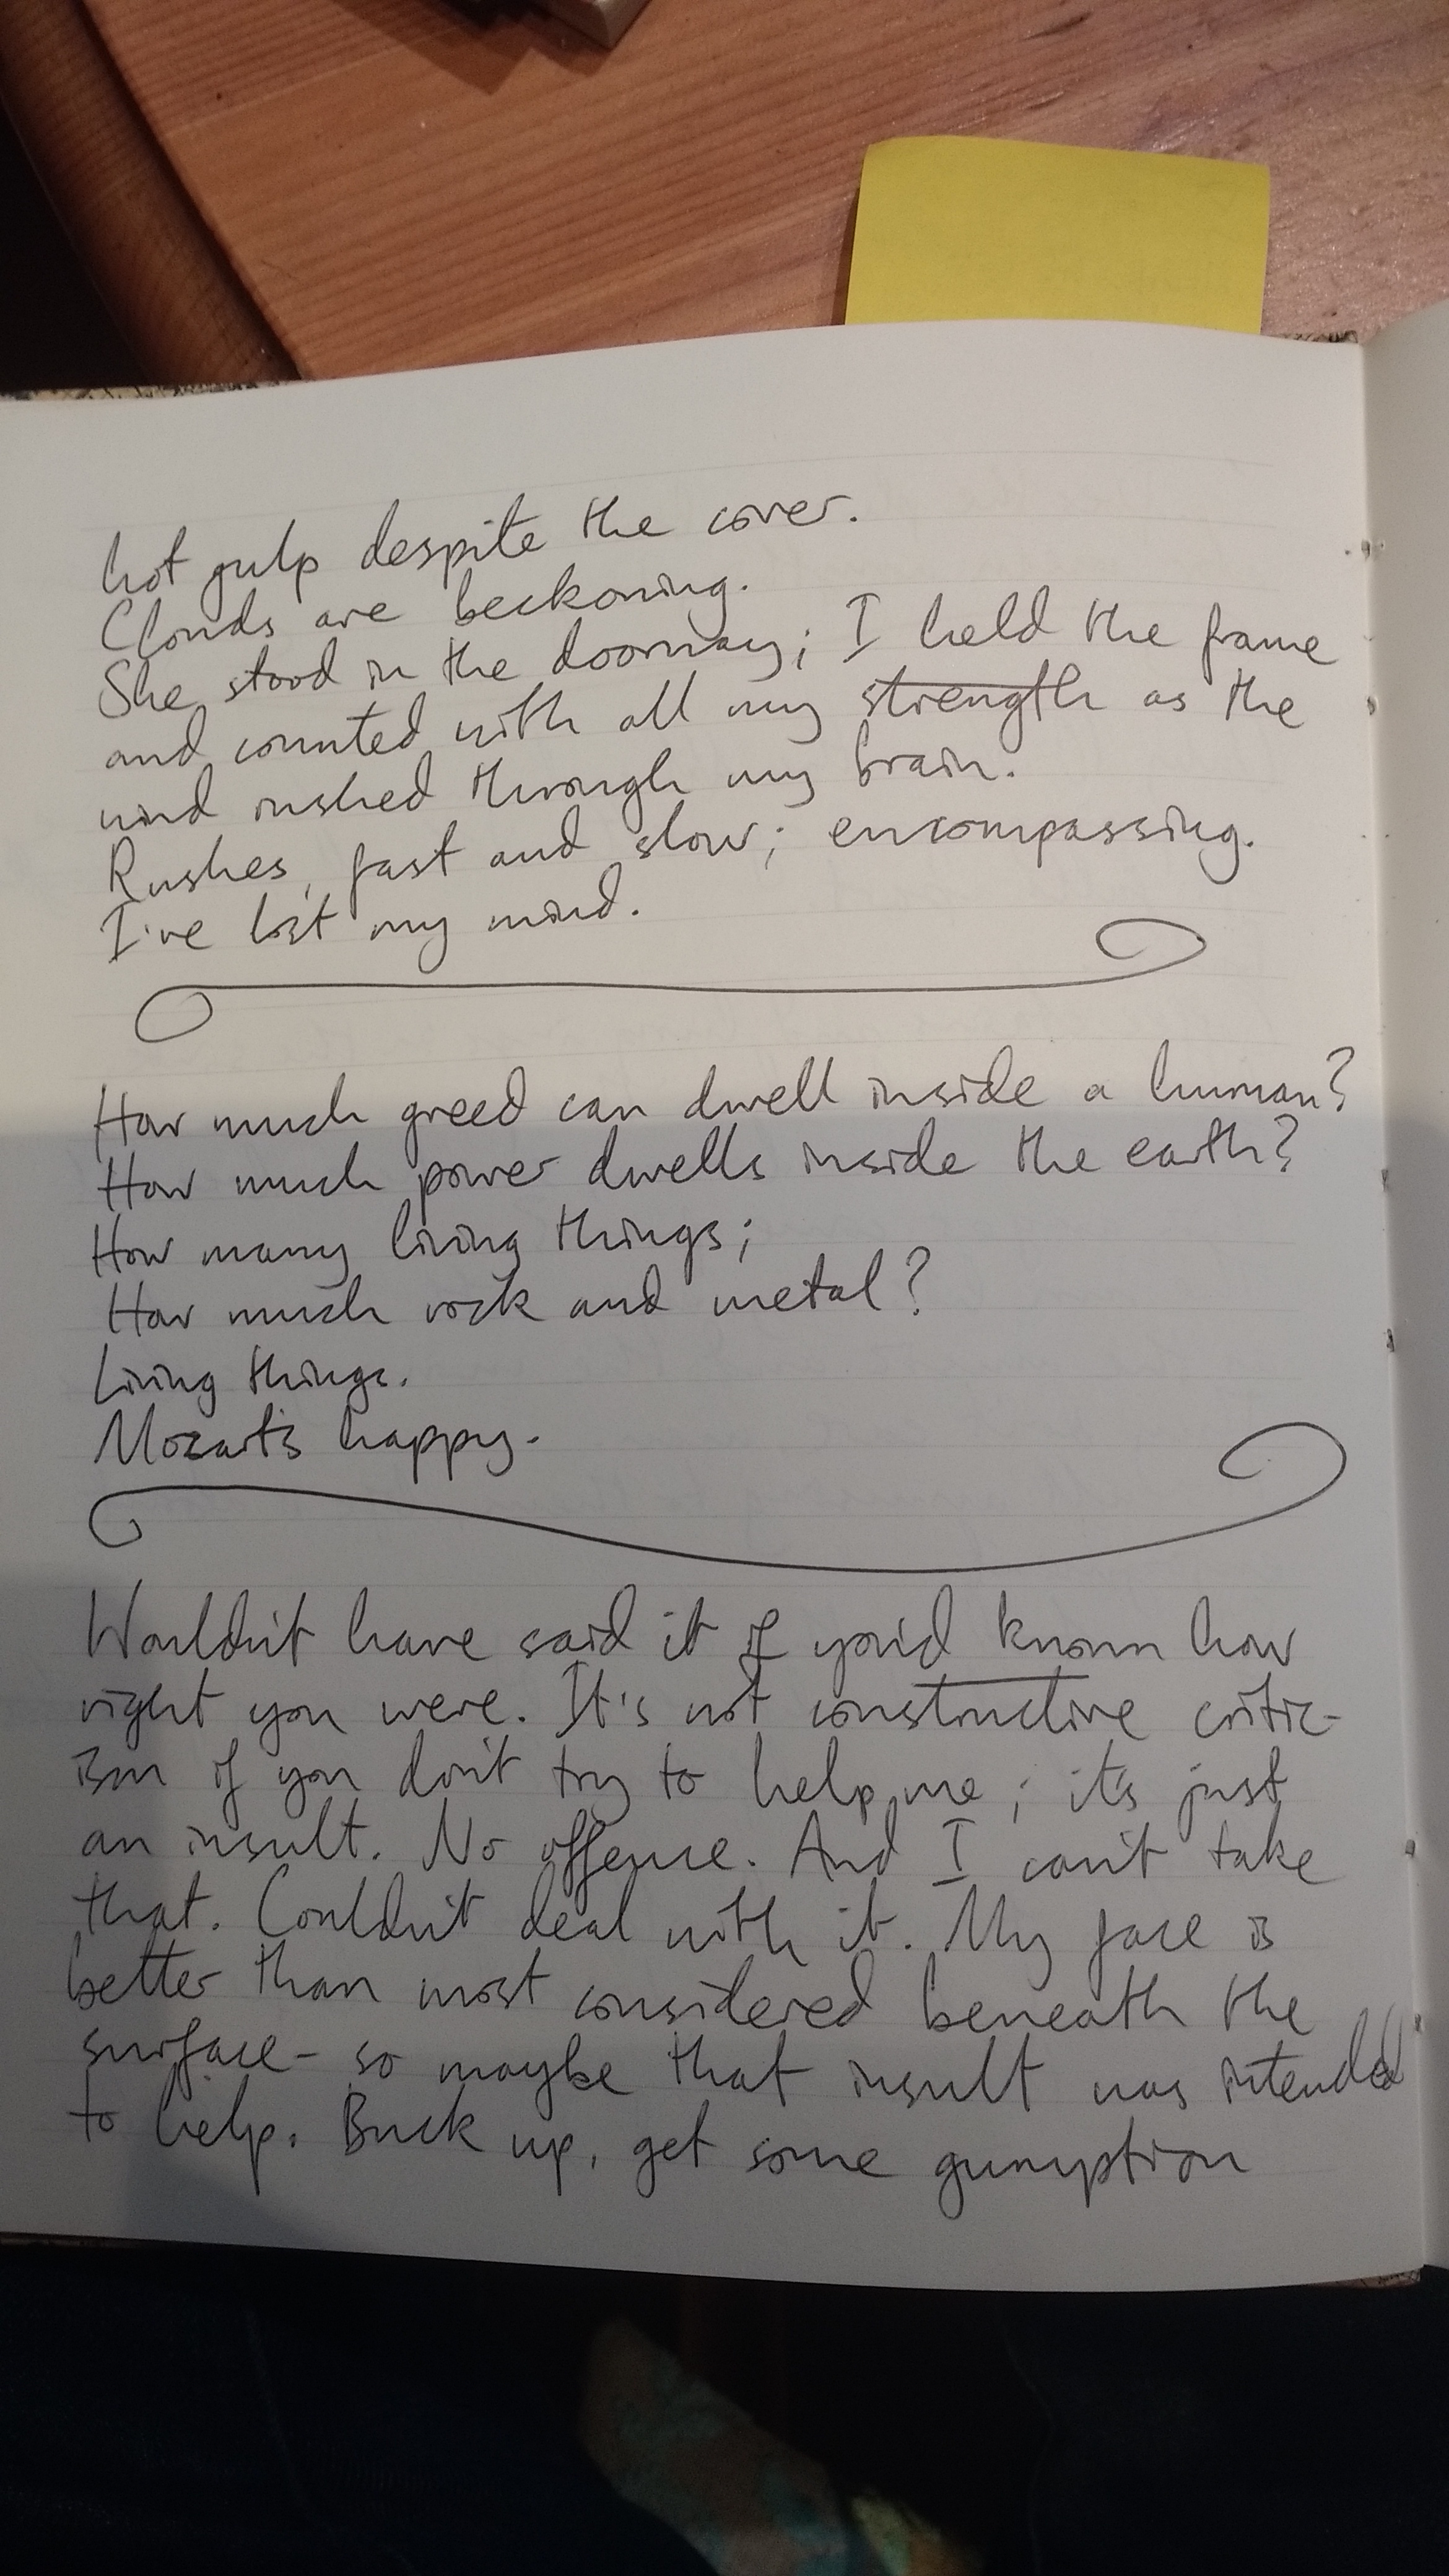 hot gulp despite the cover.
Clouds are beckoning.
She stood in the doorway; I held the frame
and counted with all my strength as the
wind rushed through my brain.
Rushes, fast and slow; encompassing.
I've lost my mind.
How much greed can dwell inside a human?
How much power dwells inside the earth?
How many living things;
How much rock and metal?
Living things.
Mozart's happy.
Wouldn't have said it if you'd known how
right you were. It's not constructive critic-
ism if you don't try to help me; it's just
an insult. No offense. And I can't take
that. Couldn't deal with it. My face is
better than most considered beneath the
surface- so maybe that insult was intended
to help. Buck up, get some gumption